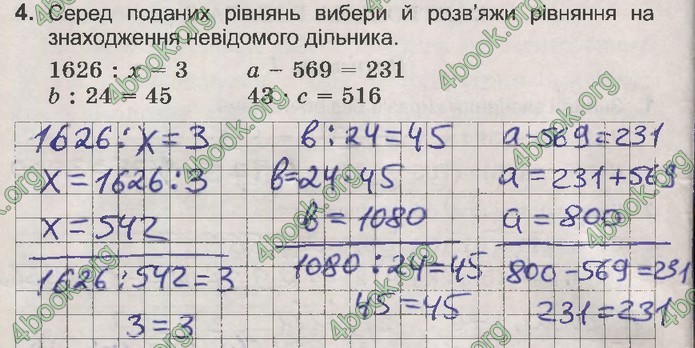 4. Серед поданих рівнянь вибери й розв'яжи рівняння на
знаходження невідомого дільника.
1626 : x = 3 a − 569 = 231
b : 24 = 45 43 · c = 516
1626 : x = 3
x = 1626 : 3
x = 542
1626 : 542 = 3
3 = 3
в : 24 = 45
в = 24 · 45
в = 1080
1080 : 24 = 45
45 = 45
a − 569 = 231
a = 231 + 569
a = 800
800 − 569 = 231
231 = 231
4book.org